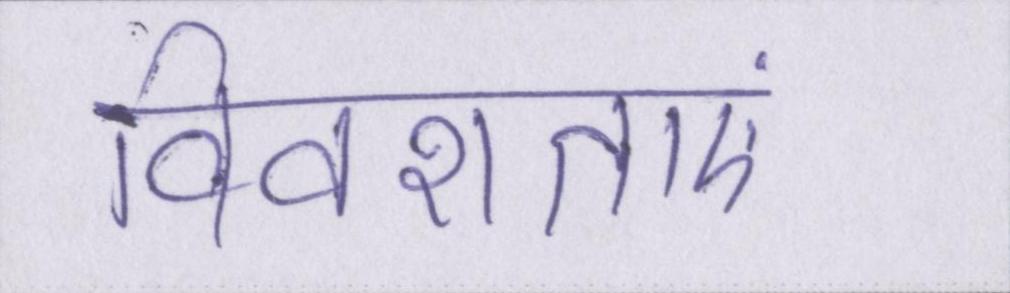 विवशताएं